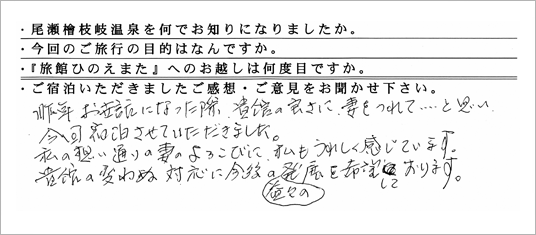 ・尾瀬檜枝岐温泉を何でお知りになりましたか。
・今回のご旅行の目的はなんですか。
・『旅館ひのえまた』へのお越しは何度目ですか。
・ご宿泊いただきましたご感想・ご意見をお聞かせ下さい。
昨年お世話になった際、貴館の良さに、妻をつれて…と思い
今回宿泊させていただきました。
私の想い通りの妻のよろこびに、私もうれしく感じています。
貴館の変わぬ対応に今後の発展を希望しております。
益々の